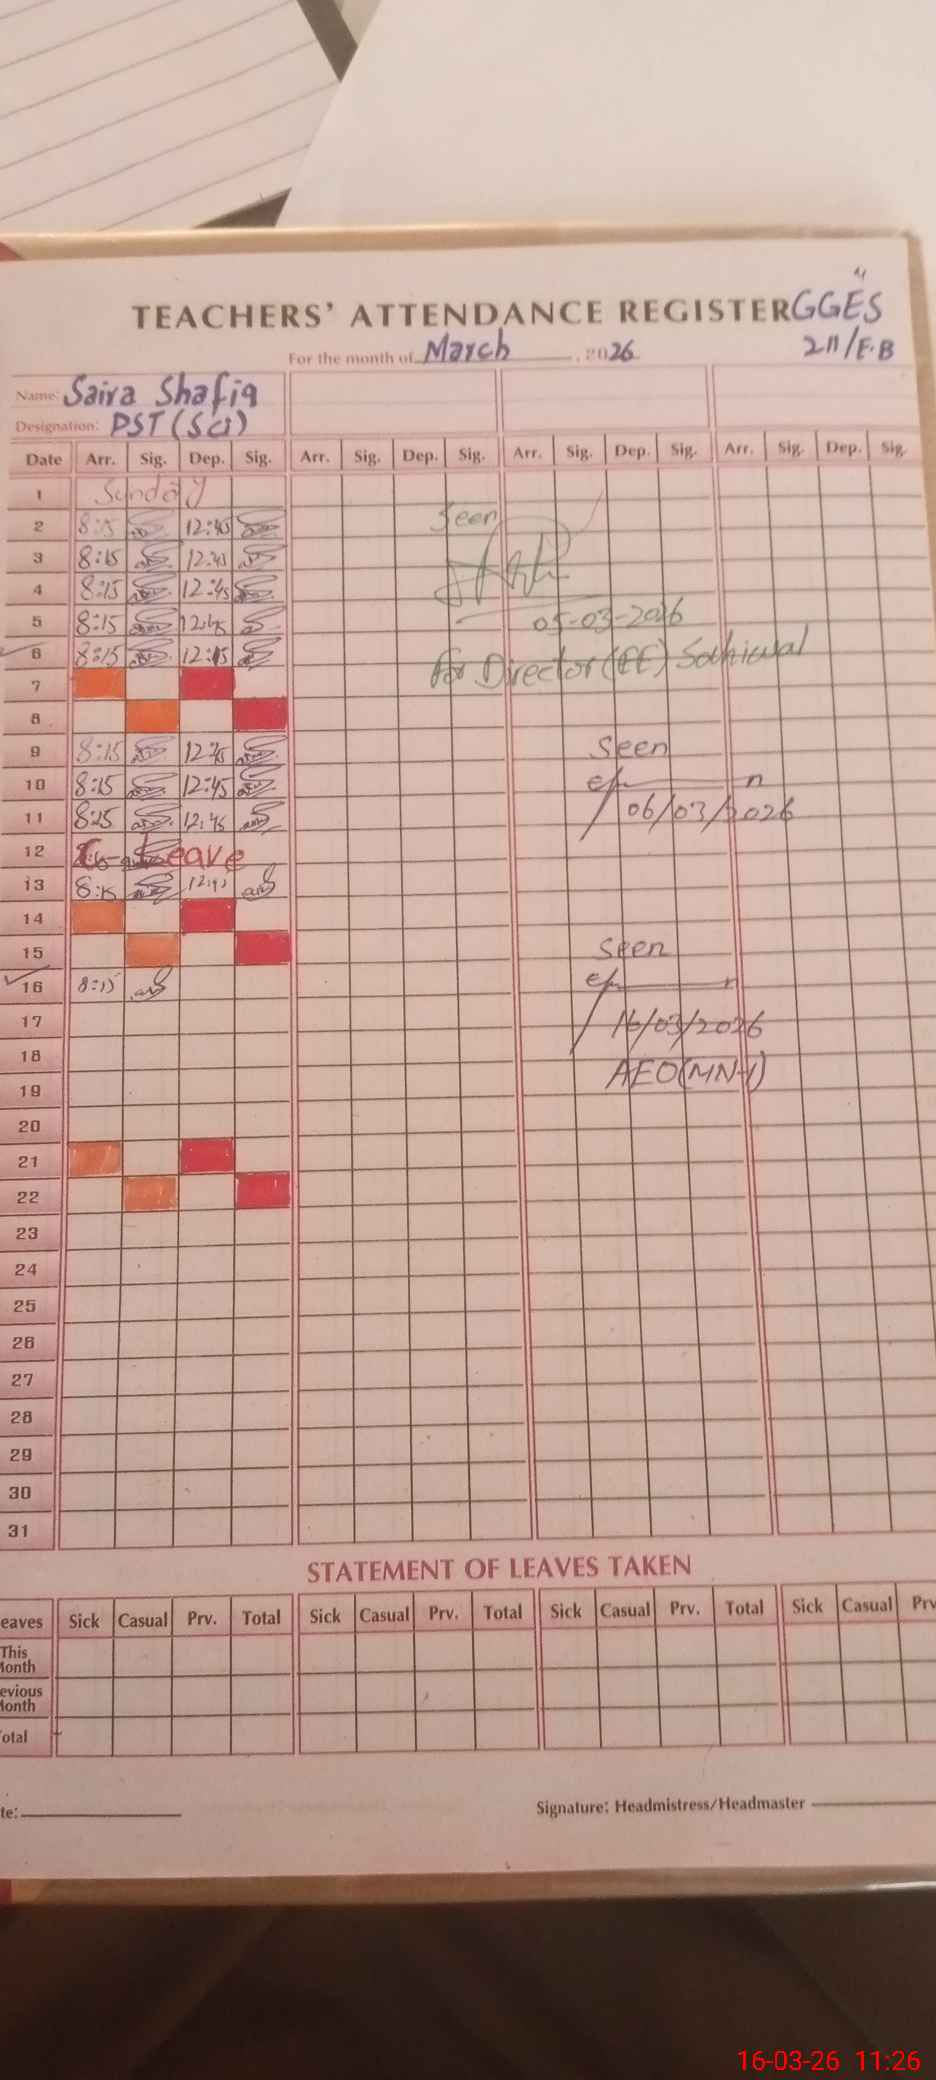 TEACHERS' ATTENDANCE REGISTER GGES
For the month of March, 2026 211/E.B
Name: Saira Shafiq
Designation: PST (Sci)
Date Arr. Sig. Dep. Sig. Arr. Sig. Dep. Sig. Arr. Sig. Dep. Sig. Arr. Sig. Dep. Sig.
1 Sunday
2 8:15 12:45 Seen
3 8:15 12:45
4 8:15 12:45
5 8:15 12:45 05-03-2026
6 8:15 12:45 for Director (EE) Sahiwal
7
8
9 8:15 12:45 Seen
10 8:15 12:45
11 8:15 12:45 06/03/2026
12 Leave
13 8:15 12:45
14
15 Seen
16 8:15
17 16/03/2026
18 AEO(MN-I)
19
20
21
22
23
24
25
26
27
28
29
30
31
STATEMENT OF LEAVES TAKEN
eaves Sick Casual Prv. Total Sick Casual Prv. Total Sick Casual Prv. Total Sick Casual Prv
This
Month
evious
Month
otal
te:
Signature: Headmistress/Headmaster
16-03-26 11:26